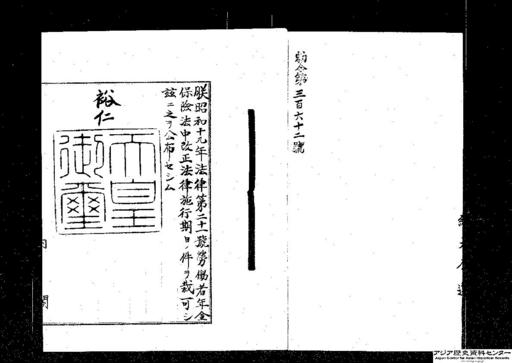 勅令第三百六十二號
朕昭和十九年法律第二十一號勞働者年金
保險法中改正法律施行期日ノ件ヲ裁可シ
茲ニ之ヲ公布セシム
裕仁
天皇
御璽
内閣
アジア歴史資料センター
Japan Center for Asian Historical Records